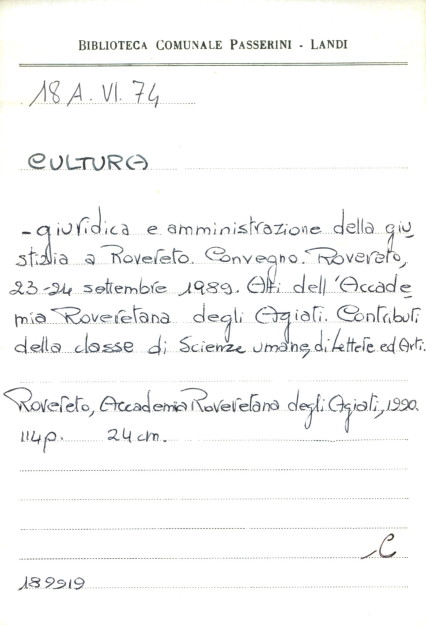 BIBLIOTECA COMUNALE PASSERINI - LANDI
18 A. VI. 74
CULTURA
- giuridica e amministrazione della giu_
stizia a Rovereto. Convegno. Rovereto,
23-24 settembre 1989. Atti dell'Accade_
mia Roveretana degli Agiati. Contributi
della classe di Scienze umane, di Lettere ed Arti.
Rovereto, Accademia Roveretana degli Agiati, 1990.
114 p. 24 cm.
C
189919